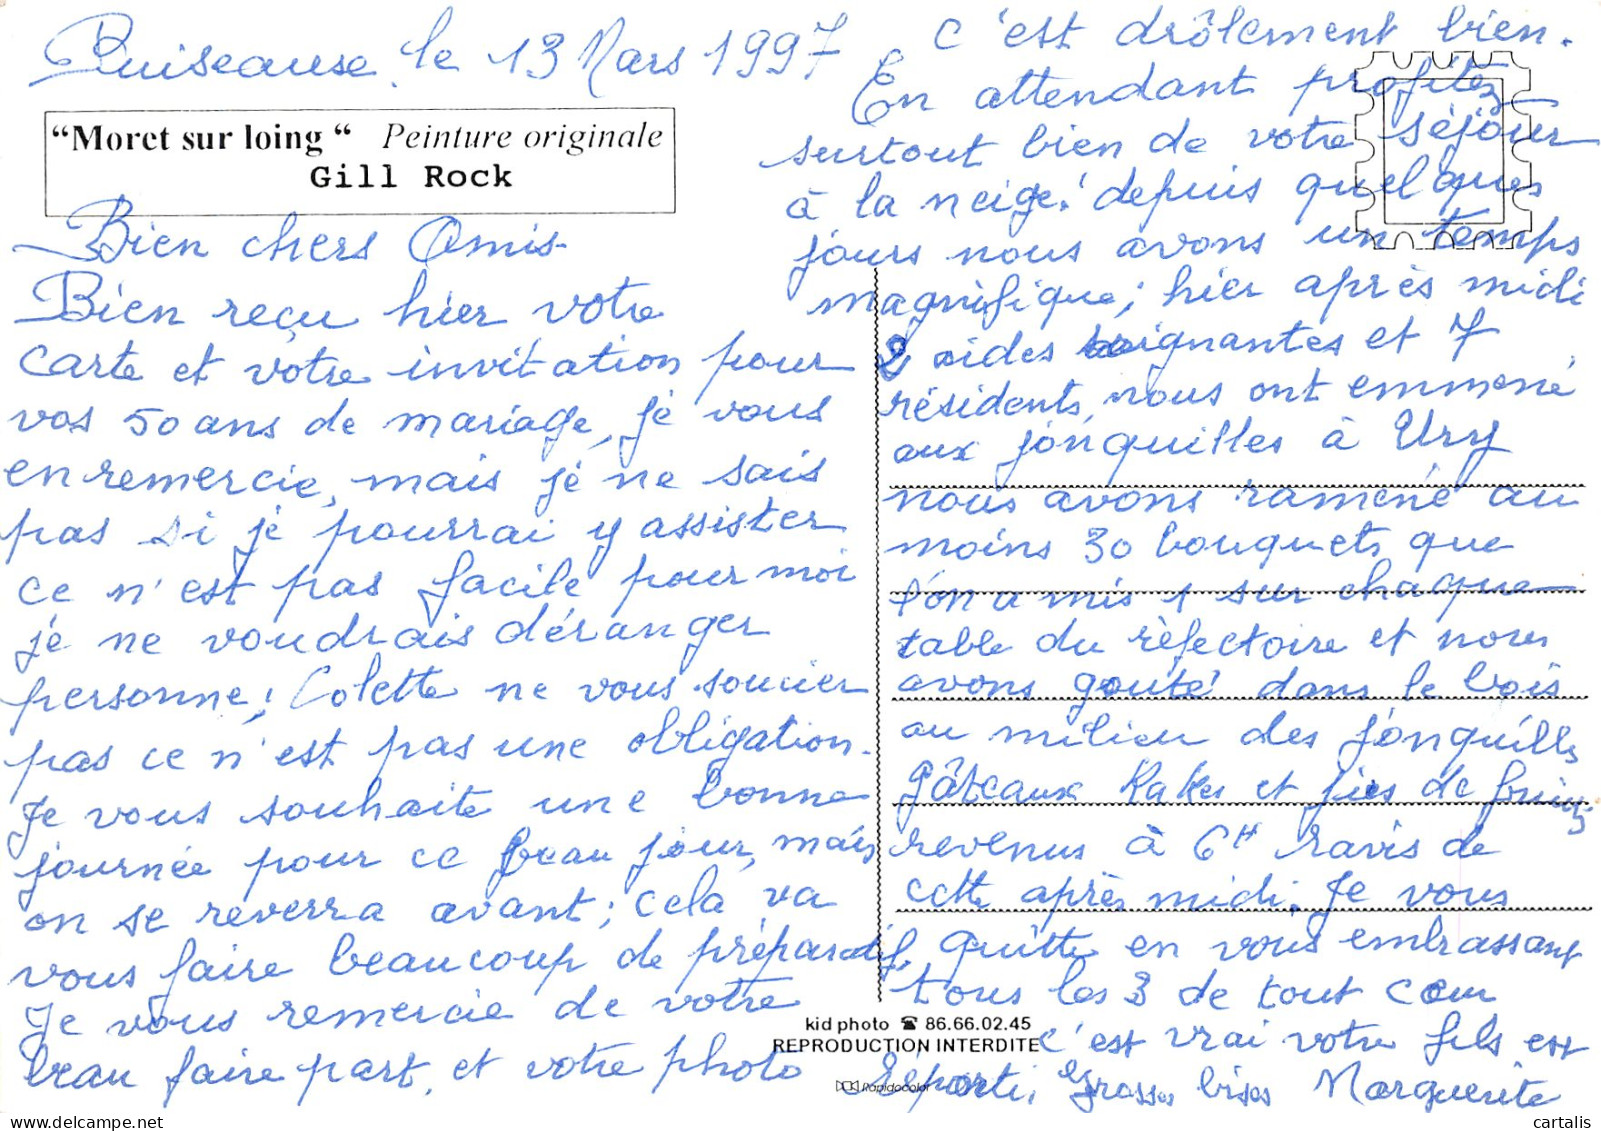 Puiseause, le 13 Mars 1997
"Moret sur loing " Peinture originale
Gill Rock
Bien chers Amis
Bien reçu hier votre
carte et votre invitation pour
vos 50 ans de mariage, je vous
en remercie, mais je ne sais
pas si je pourrai y assister
ce n'est pas facile pour moi
je ne voudrais déranger
personne, Colette ne vous soucier
pas ce n'est pas une obligation.
Je vous souhaite une bonne
journée pour ce beau jour, mais
on se reverra avant; cela va
vous faire beaucoup de préparatifs,
Je vous remercie de votre
beau faire part, et votre photo
c'est drôlement bien.
En attendant profitez
surtout bien de votre séjour
à la neige! depuis quelques
jours nous avons un temps
magnifique; hier après midi
2 aides soignantes et 7
résidents, nous ont emmené
aux jonquilles à Ury
nous avons ramené au
moins 30 bouquets que
l'on a mis 1 sur chaque
table du réfectoire et nous
avons gouté dans le bois
au milieu des jonquilles
gâteaux Kakes et jus de fruits
revenus à 6H ravis de
cette après midi. Je vous
quitte en vous embrassant
tous les 3 de tout cœur
c'est vrai votre fils est
séparti, grosses bises Marguerite
kid photo ☎ 86.66.02.45
REPRODUCTION INTERDITE
Rapidocolor
cartalis.com